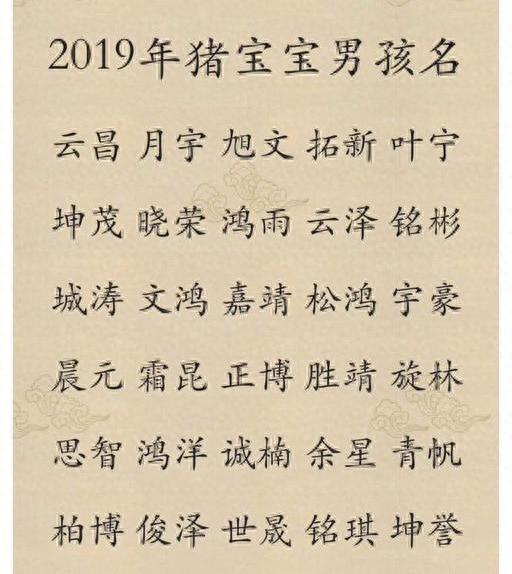 2019年猪宝宝男孩名
云昌 月宇 旭文 拓新 叶宁
坤茂 晓荣 鸿雨 云泽 铭彬
城涛 文鸿 嘉靖 松鸿 宇豪
晨元 霜昆 正博 胜靖 旋林
思智 鸿洋 诚楠 余星 青帆
柏博 俊泽 世晟 铭琪 坤誉